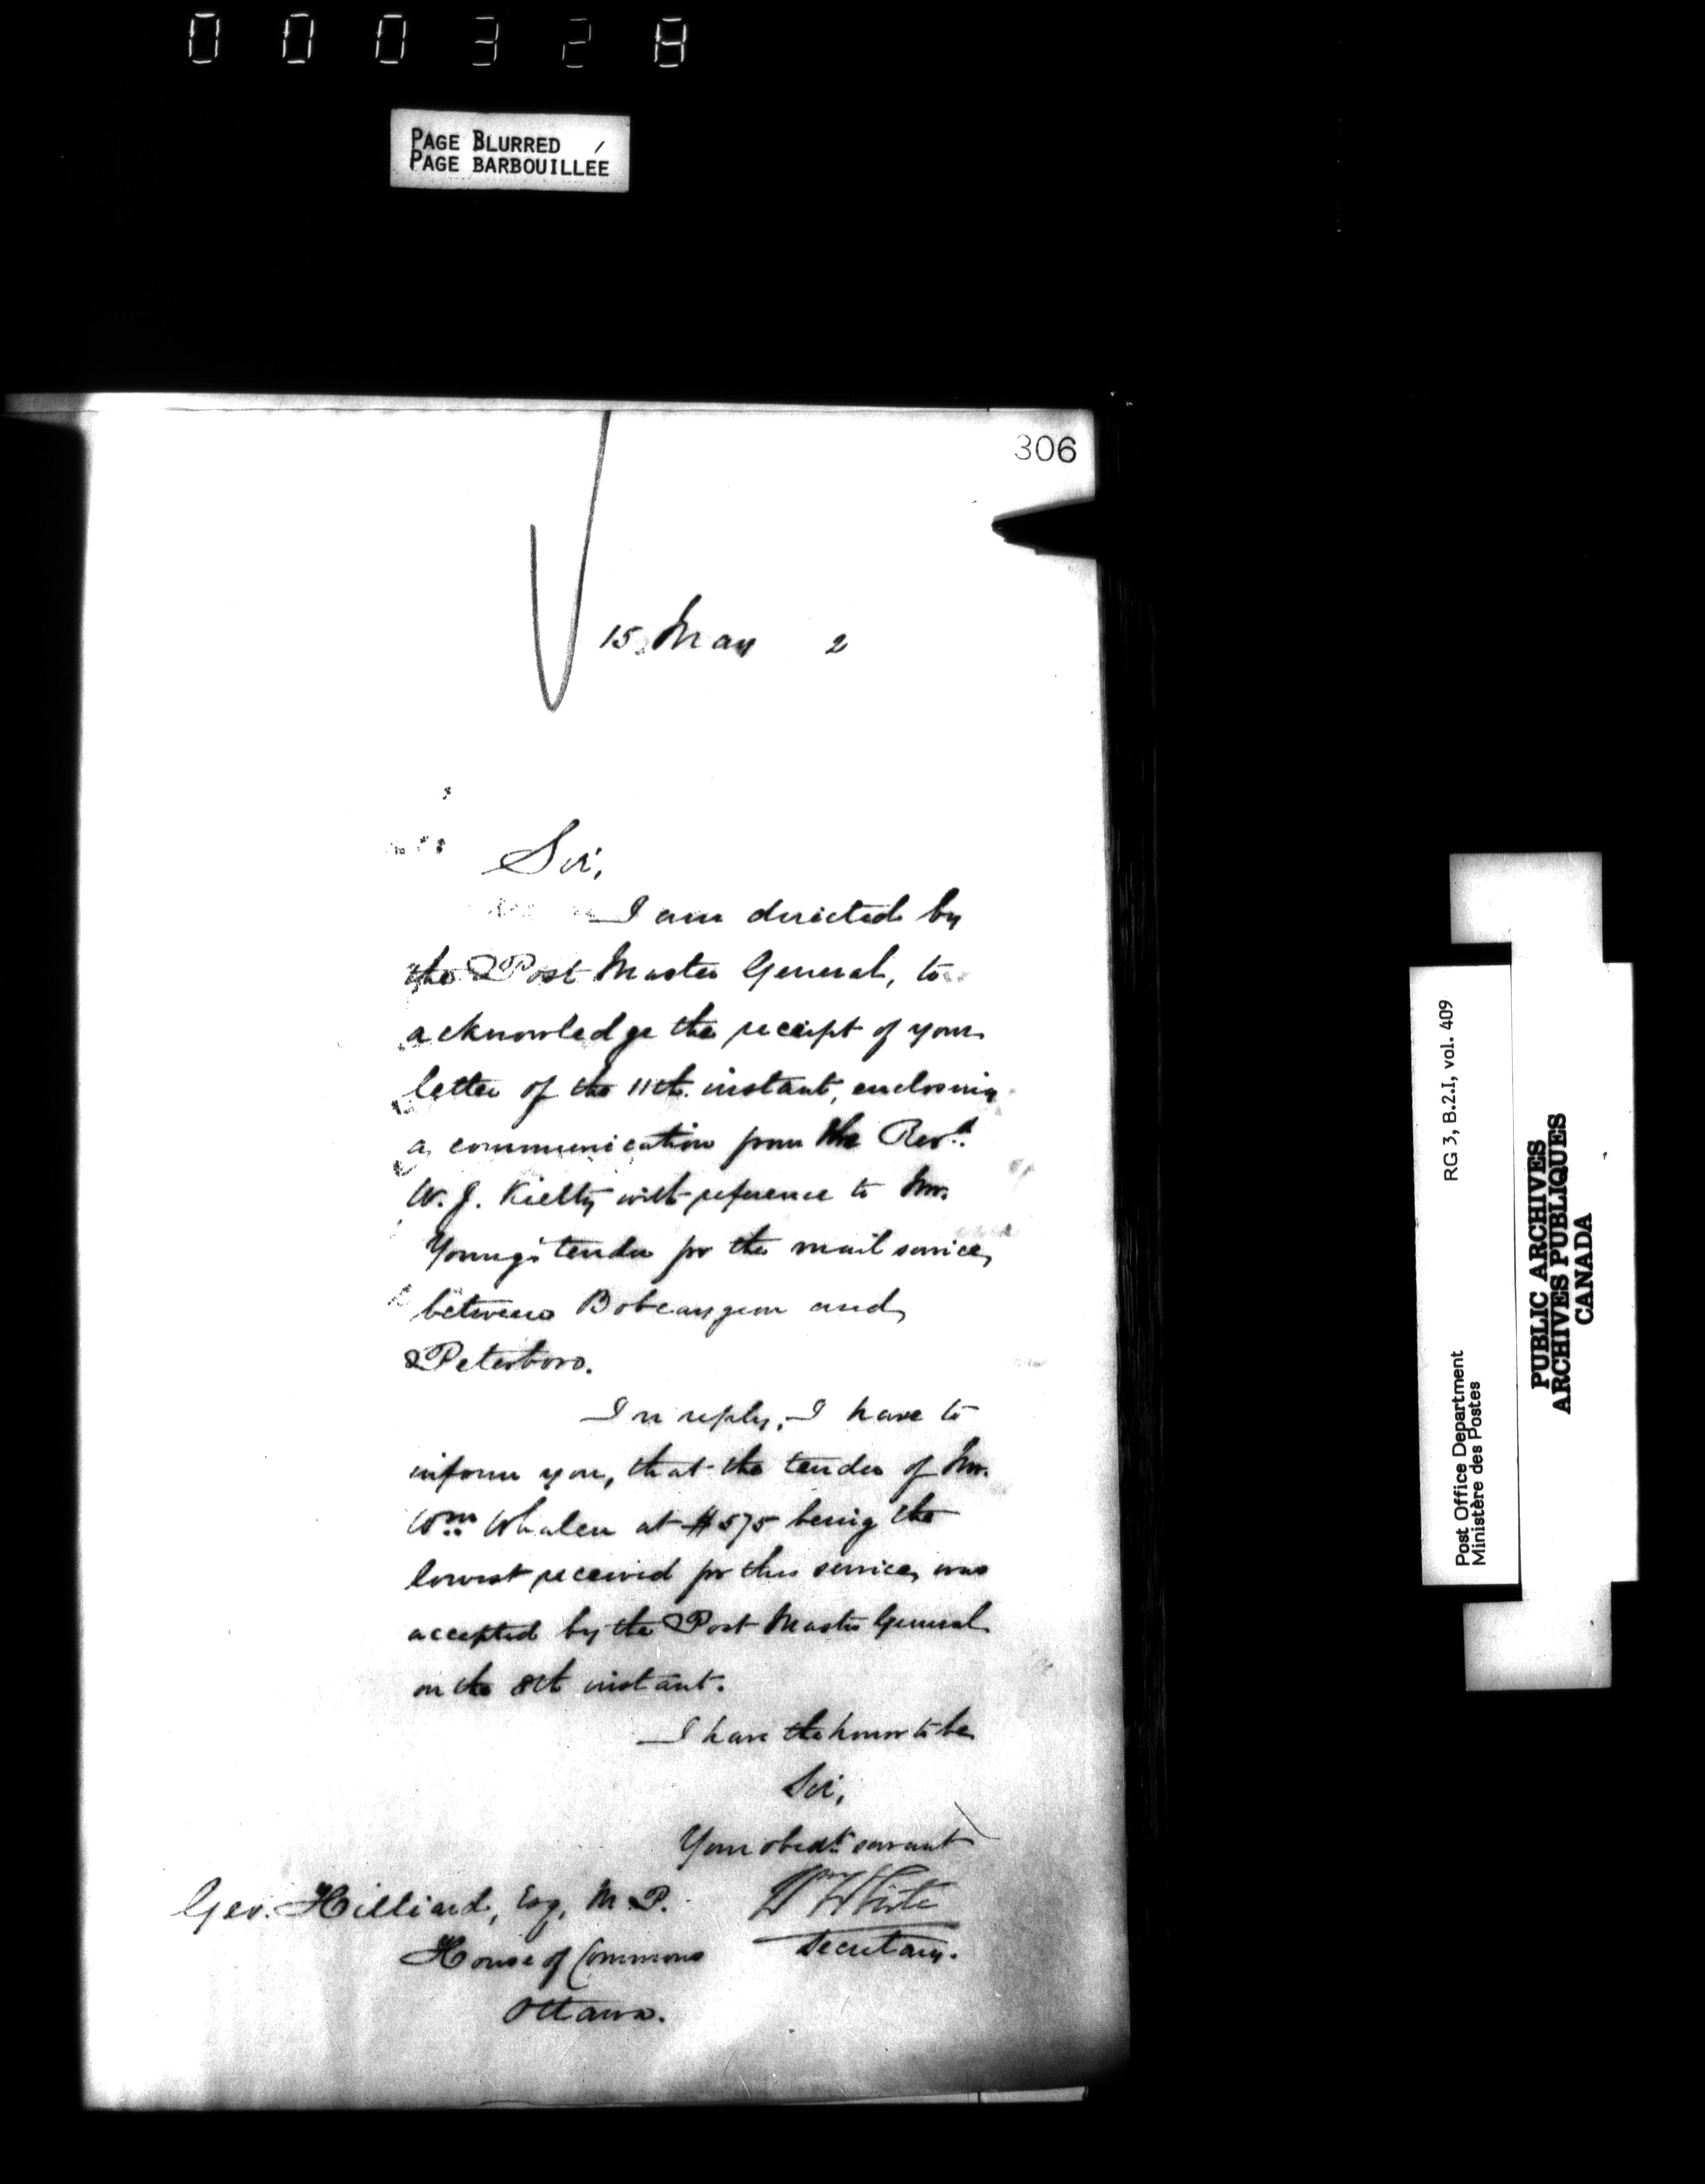 000328
PAGE BLURRED
PAGE BARBOUILLÉE
306
15 May 2
Sir,
I am directed by
the Post Master General, to
acknowledge the receipt of your
letter of the 11th. instant, enclosing
a communication from the Revd.
W. J. Kielty with reference to Mr.
Young's tender for the mail service
between Bobcaygeon and
Peterboro.
In reply, I have to
inform you, that the tender of Mr.
Wm. Whalen at $575 being the
lowest received for this service, was
accepted by the Post Master General
on the 8th instant.
I have the honor to be
Sir,
Your obedt. servant
Wm White
Secretary.
Geo. Hilliard, Esq, M.P.
House of Commons
Ottawa.
RG 3, B.2.I, vol. 409
Post Office Department
Ministère des Postes
PUBLIC ARCHIVES
ARCHIVES PUBLIQUES
CANADA